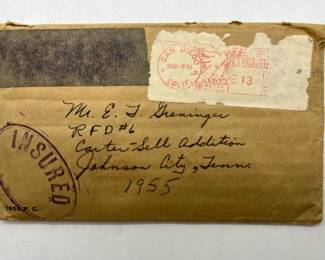 SAN DIEGO
CALIF.
13
Mr. E. J. Greninger
RFD#6
Carter-Sell Addition
Johnson City, Tenn.
1955
INSURED